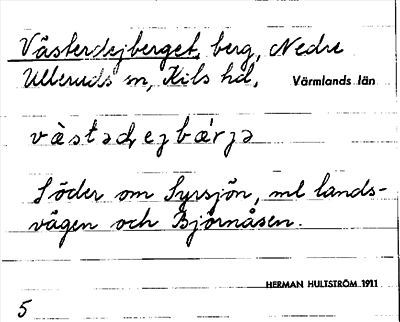 Västerdejberget, berg, Nedre
Ulleruds sn, Kils hd, Värmlands län
và̀stədₑejbǽrjə
Söder om Syrsjön, ml lands-
vägen och Björnåsen.
HERMAN HULTSTRÖM 1911
5